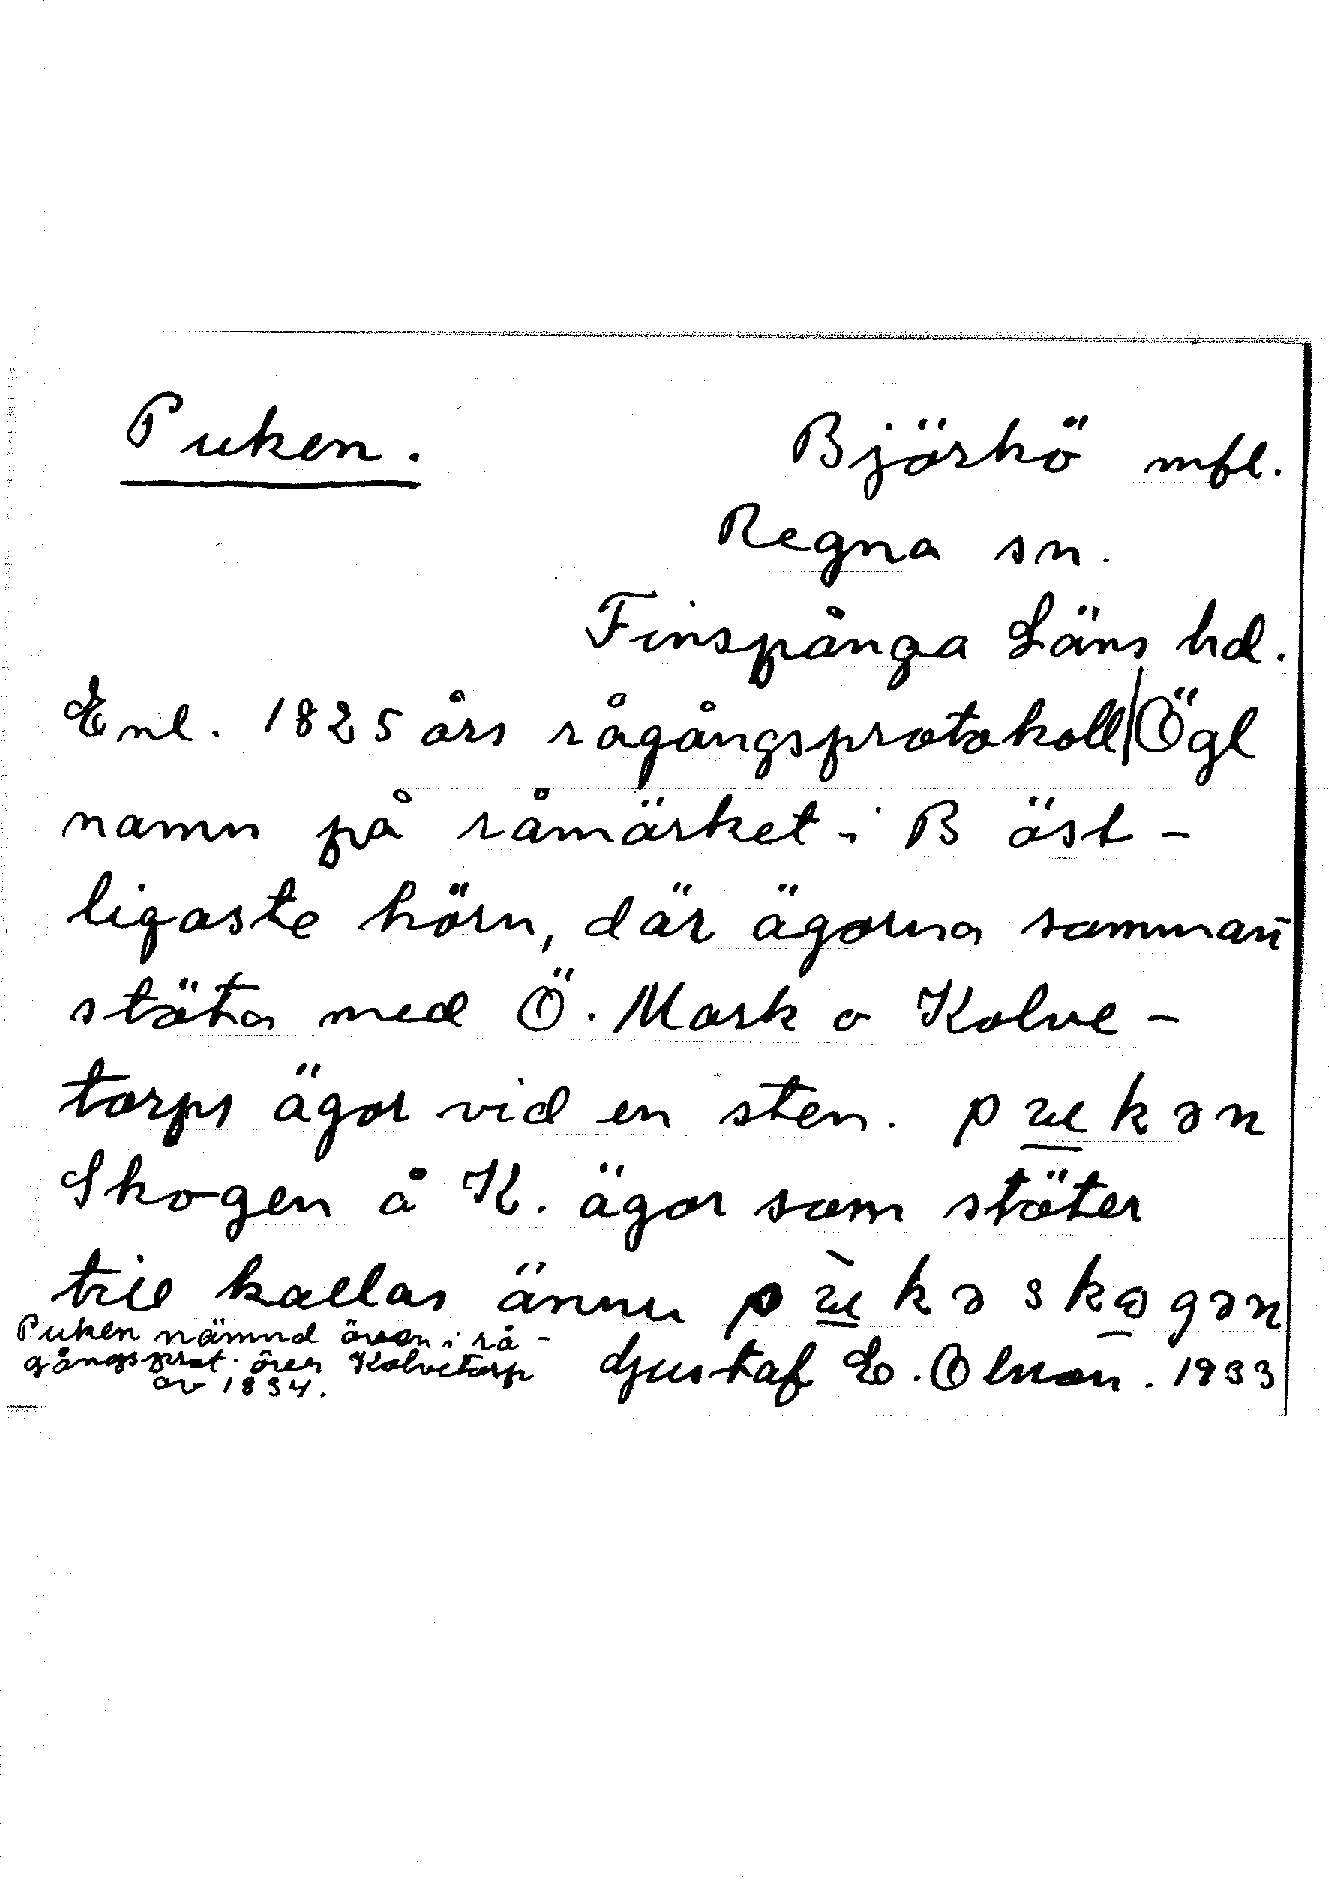 Puken. Björkö mfl.
Regna sn.
Finspånga Läns hd.
Enl. 1825 års rågångsprotokoll Ögl
namn på råmärket i B öst-
ligaste hörn, där ägorna samman
stöta med Ö. Mark o Kolve-
torps ägor vid en sten. pukən
Skogen å K. ägor som stöter
till kallas ännu pùkəskogən
Puken nämnd även i rå-
gångsprot. över Kolvetorp
av 1834.
Gustaf E. Olsson. 1933